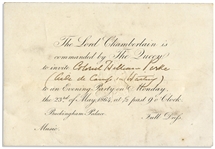 The Lord Chamberlain is
commanded by The Queen
to invite Colonel William
(Aide de Camp in Waiting)
to an Evening Party on Monday,
the 23rd of May 1864, at ½ past 9 o'Clock
Buckingham Palace.
Full Dress.
Music.